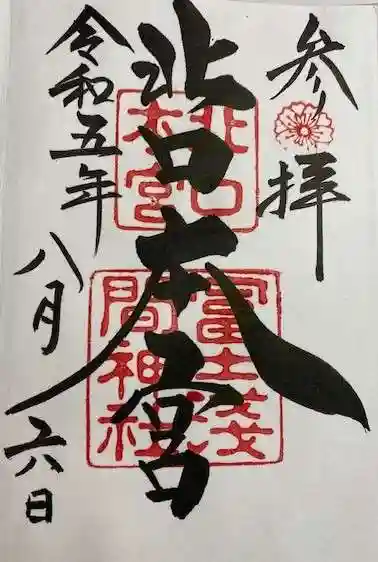 参拝
北口本宮
北口
本宮
冨士浅
間神社
令和五年
八月二六日